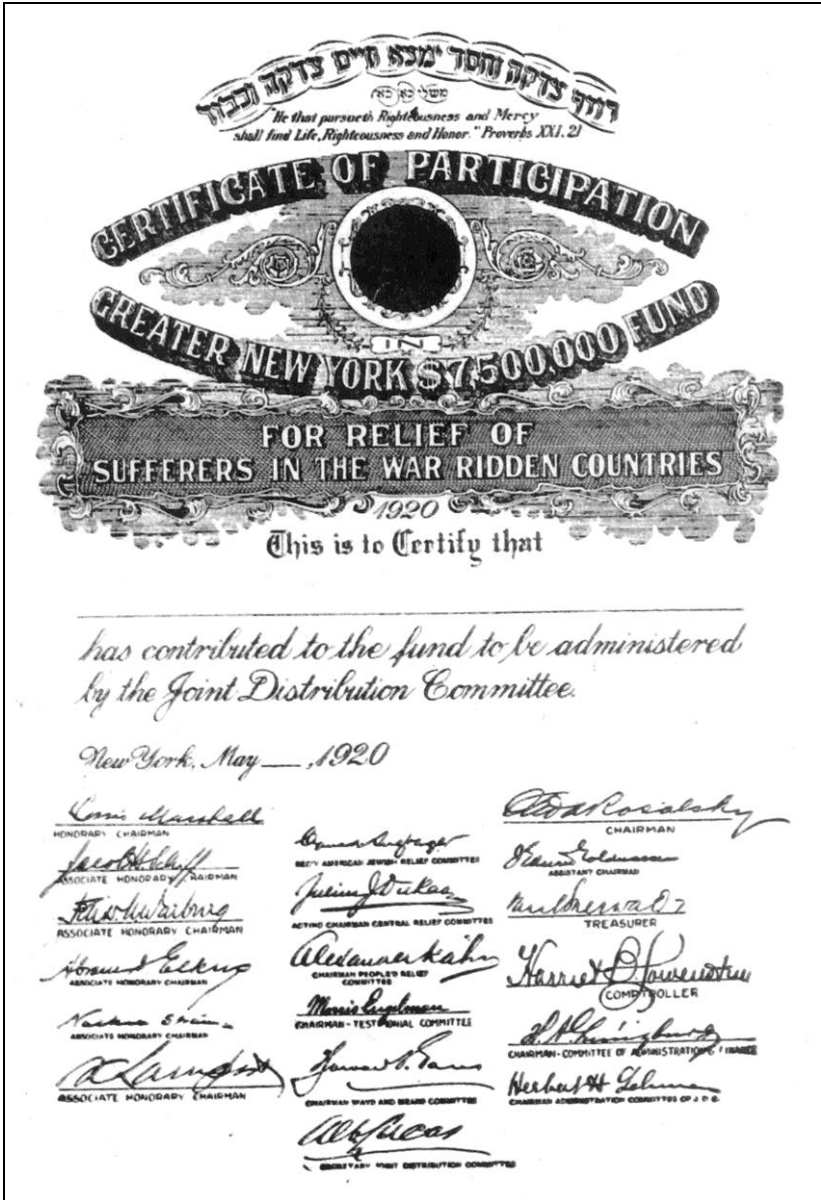 רודף צדקה וחסד ימצא חיים צדקה וכבוד
משלי כא כא
"He that pursueth Righteousness and Mercy
shall find Life, Righteousness and Honor." Proverbs XXI. 21
CERTIFICATE OF PARTICIPATION
IN
GREATER NEW YORK $7,500,000 FUND
FOR RELIEF OF
SUFFERERS IN THE WAR RIDDEN COUNTRIES
1920
This is to Certify that
has contributed to the fund to be administered
by the Joint Distribution Committee.
New York, May , 1920
Louis Marshall
HONORARY CHAIRMAN
Jacob H. Schiff
ASSOCIATE HONORARY CHAIRMAN
Felix M. Warburg
ASSOCIATE HONORARY CHAIRMAN
ASSOCIATE HONORARY CHAIRMAN
ASSOCIATE HONORARY CHAIRMAN
ASSOCIATE HONORARY CHAIRMAN
SEC'Y AMERICAN JEWISH RELIEF COMMITTEE
Julius J. Dukas
ACTING CHAIRMAN CENTRAL RELIEF COMMITTEE
Alexander Kahn
CHAIRMAN PEOPLE'S RELIEF
COMMITTEE
Morris Engelman
CHAIRMAN - TESTIMONIAL COMMITTEE
CHAIRMAN WAYS AND MEANS COMMITTEE
Alb Lucas
SECRETARY JOINT DISTRIBUTION COMMITTEE
Otto A Rosalsky
CHAIRMAN
ASSISTANT CHAIRMAN
TREASURER
Harriet B. Lowenstein
COMPTROLLER
CHAIRMAN - COMMITTEE OF ADMINISTRATION & FINANCE
Herbert H Lehman
CHAIRMAN ADMINISTRATION COMMITTEE OF J D C